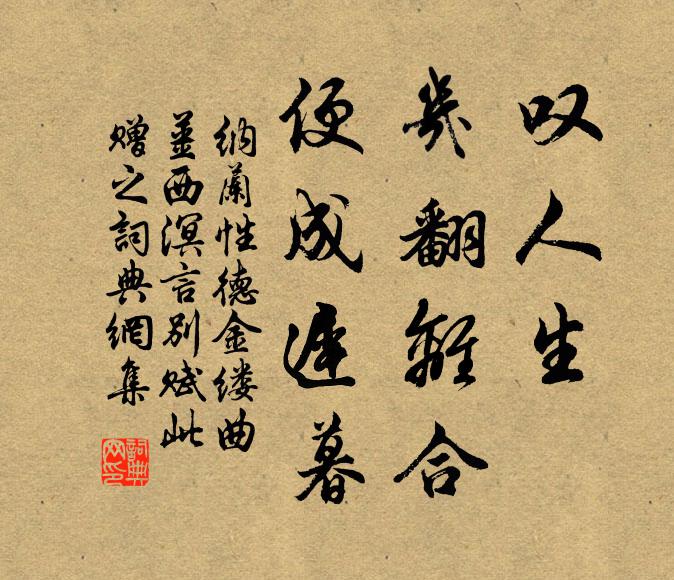 叹人生
几翻离合
便成迟暮
纳兰性德金缕曲
姜西溟言别赋此
赠之词典网集
词典网印